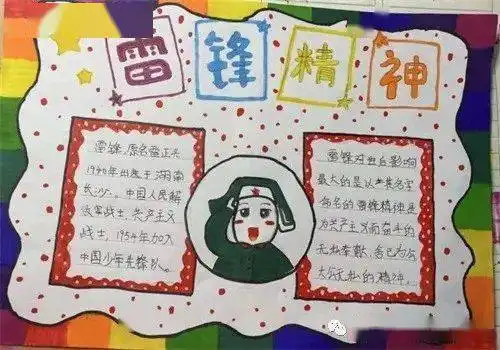 雷锋精神
雷锋,原名雷正兴
1940年出生于湖南
长沙。中国人民解
放军战士,共产主义
战士,1954年加入
中国少年先锋队。
雷锋对世后影响
最大的是以其名字
命名的雷锋精神是
为共产主义而奋斗的
无私奉献,舍己为公
大公无私的精神。